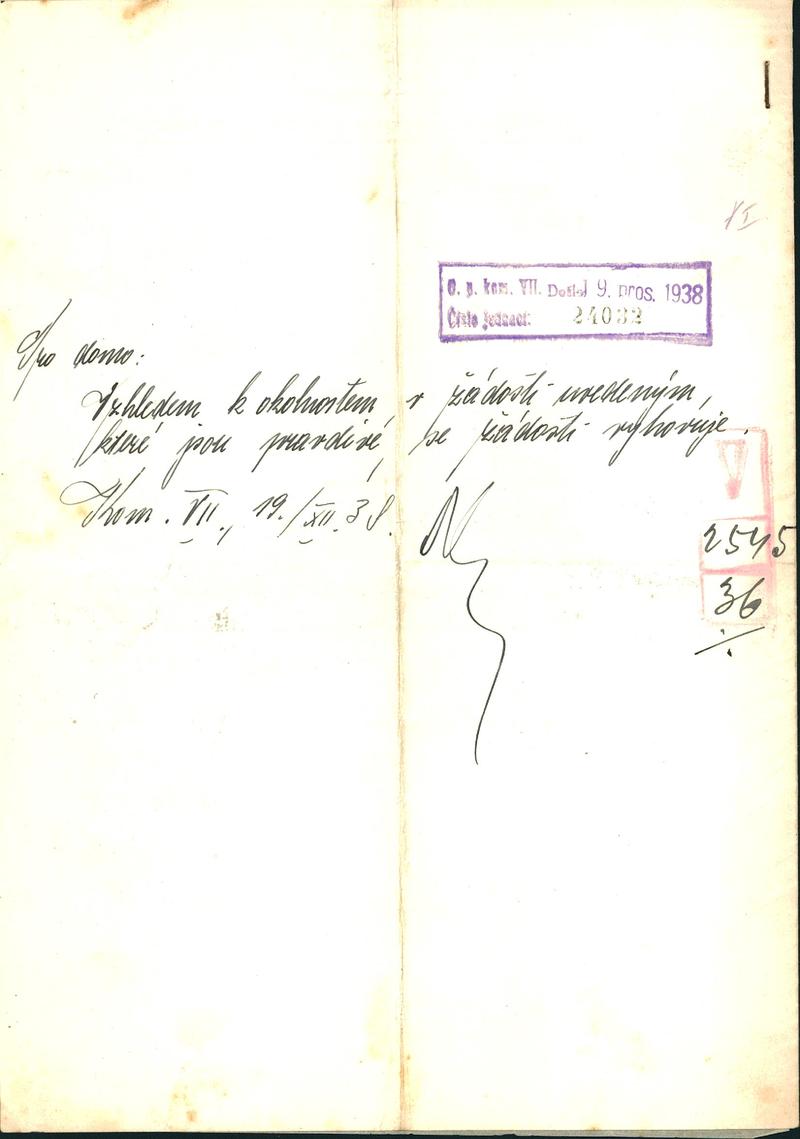 XI
O. p. kom. VII. Došlo 19. pros. 1938
Číslo jednací: 24032
Pro domo:
Vzhledem k okolnostem, v žádosti uvedeným,
které jsou pravdivé, se žádosti vyhovuje.
Kom. VII., 19./XII. 38.
V
2545
36